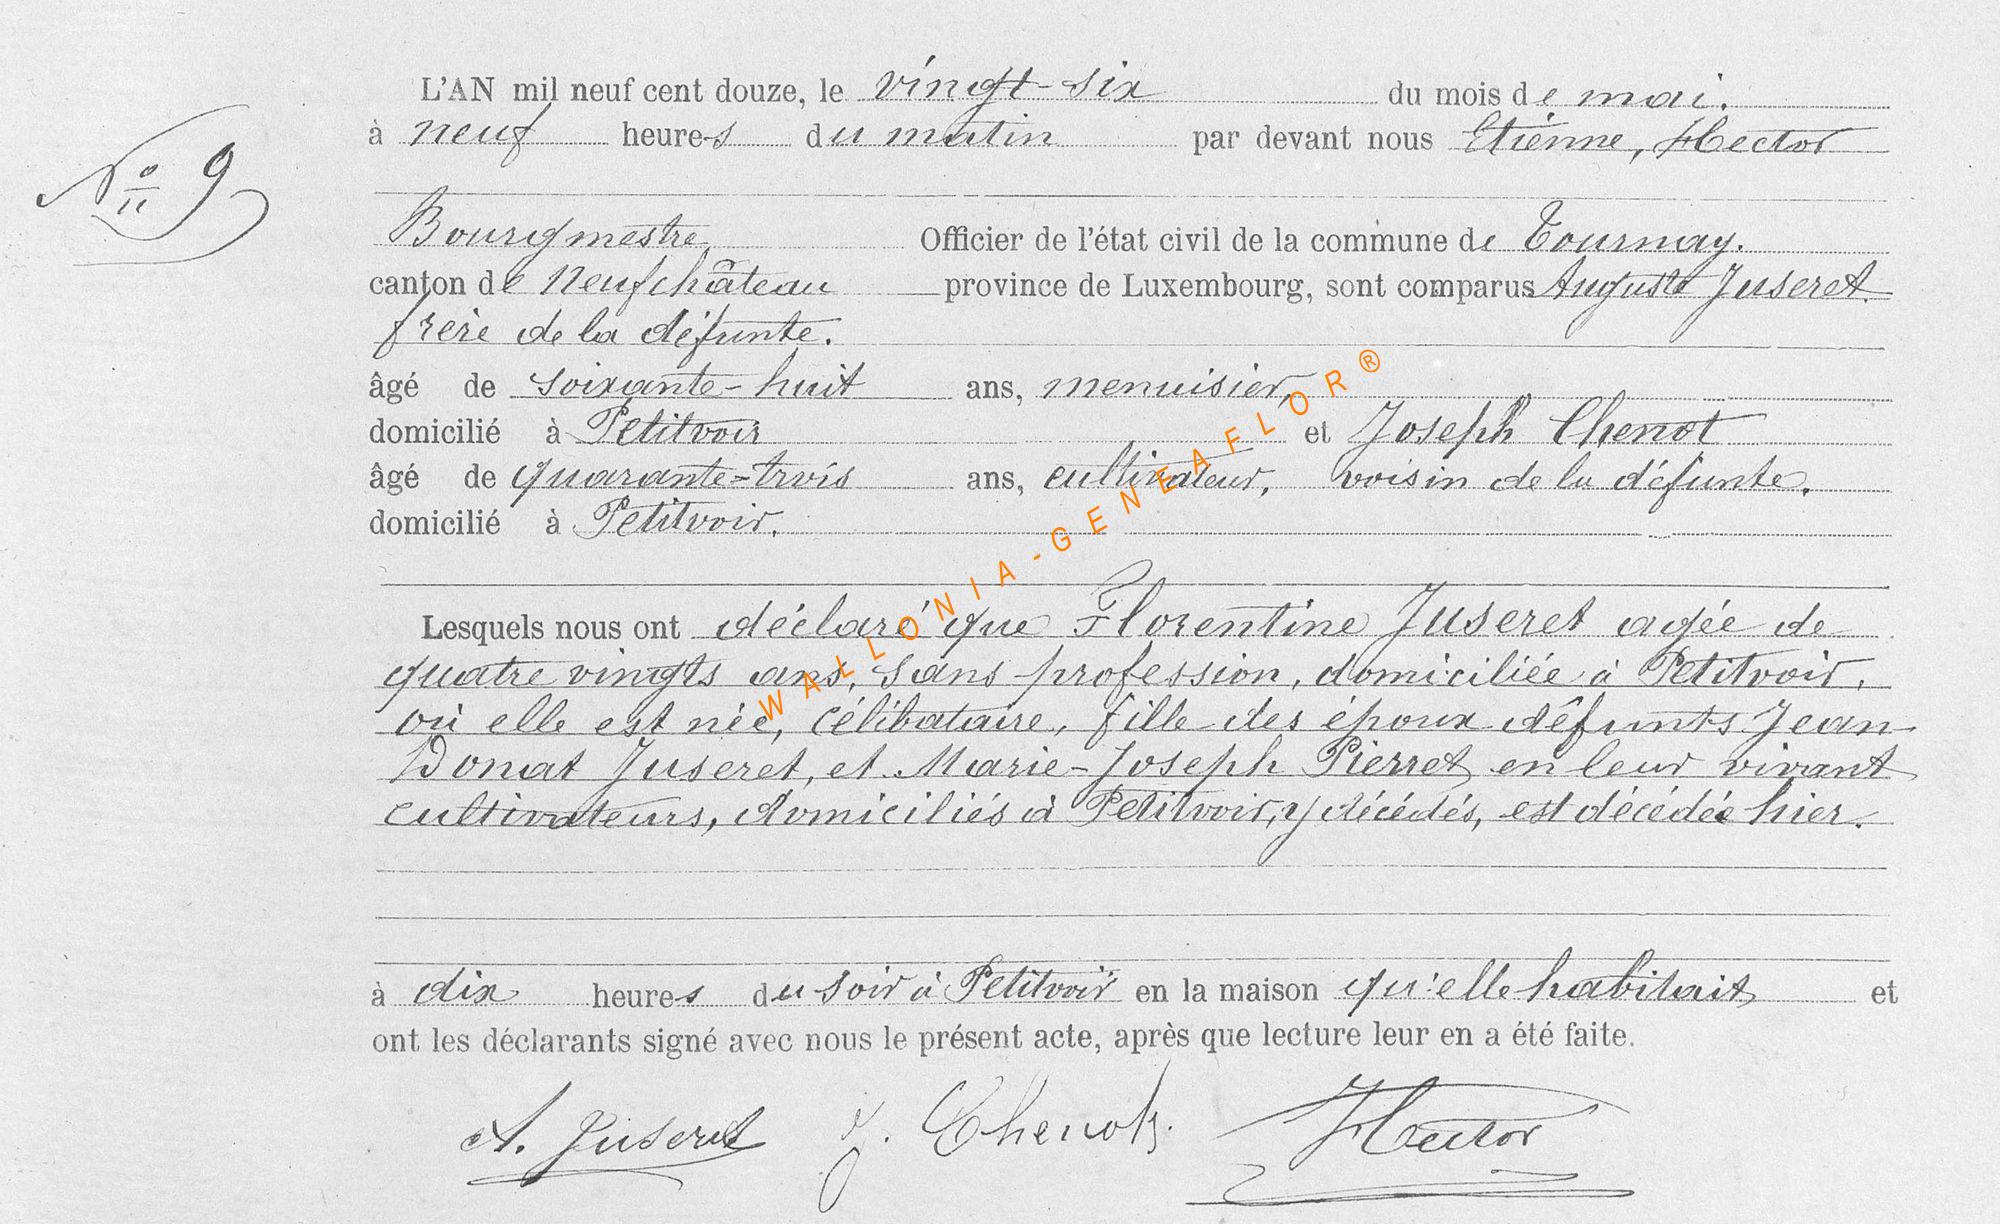 L'AN mil neuf cent douze, le vingt-six du mois de mai.
à neuf heures du matin par devant nous Etienne, Hector
No 9
Bourgmestre, Officier de l'état civil de la commune de Tournay.
canton de Neufchâteau province de Luxembourg, sont comparus Auguste Juseret
frère de la défunte.
âgé de soixante-huit ans, menuisier,
domicilié à Petitvoir et Joseph Chenot
âgé de quarante-trois ans, cultivateur, voisin de la défunte.
domicilié à Petitvoir.
Lesquels nous ont déclaré que Florentine Juseret agée de
quatre vingts ans, sans profession, domiciliée à Petitvoir,
où elle est née, célibataire, fille des époux défunts Jean
Donat Juseret, et Marie-Joseph Pierret en leur vivant
cultivateurs, domiciliés à Petitvoir, y décédés, est décédée hier.
à dix heures du soir à Petitvoir en la maison qu'elle habitait et
ont les déclarants signé avec nous le présent acte, après que lecture leur en a été faite.
A. Juseret J. Chenot. Hector
WALLONIA-GENEAFLOR®